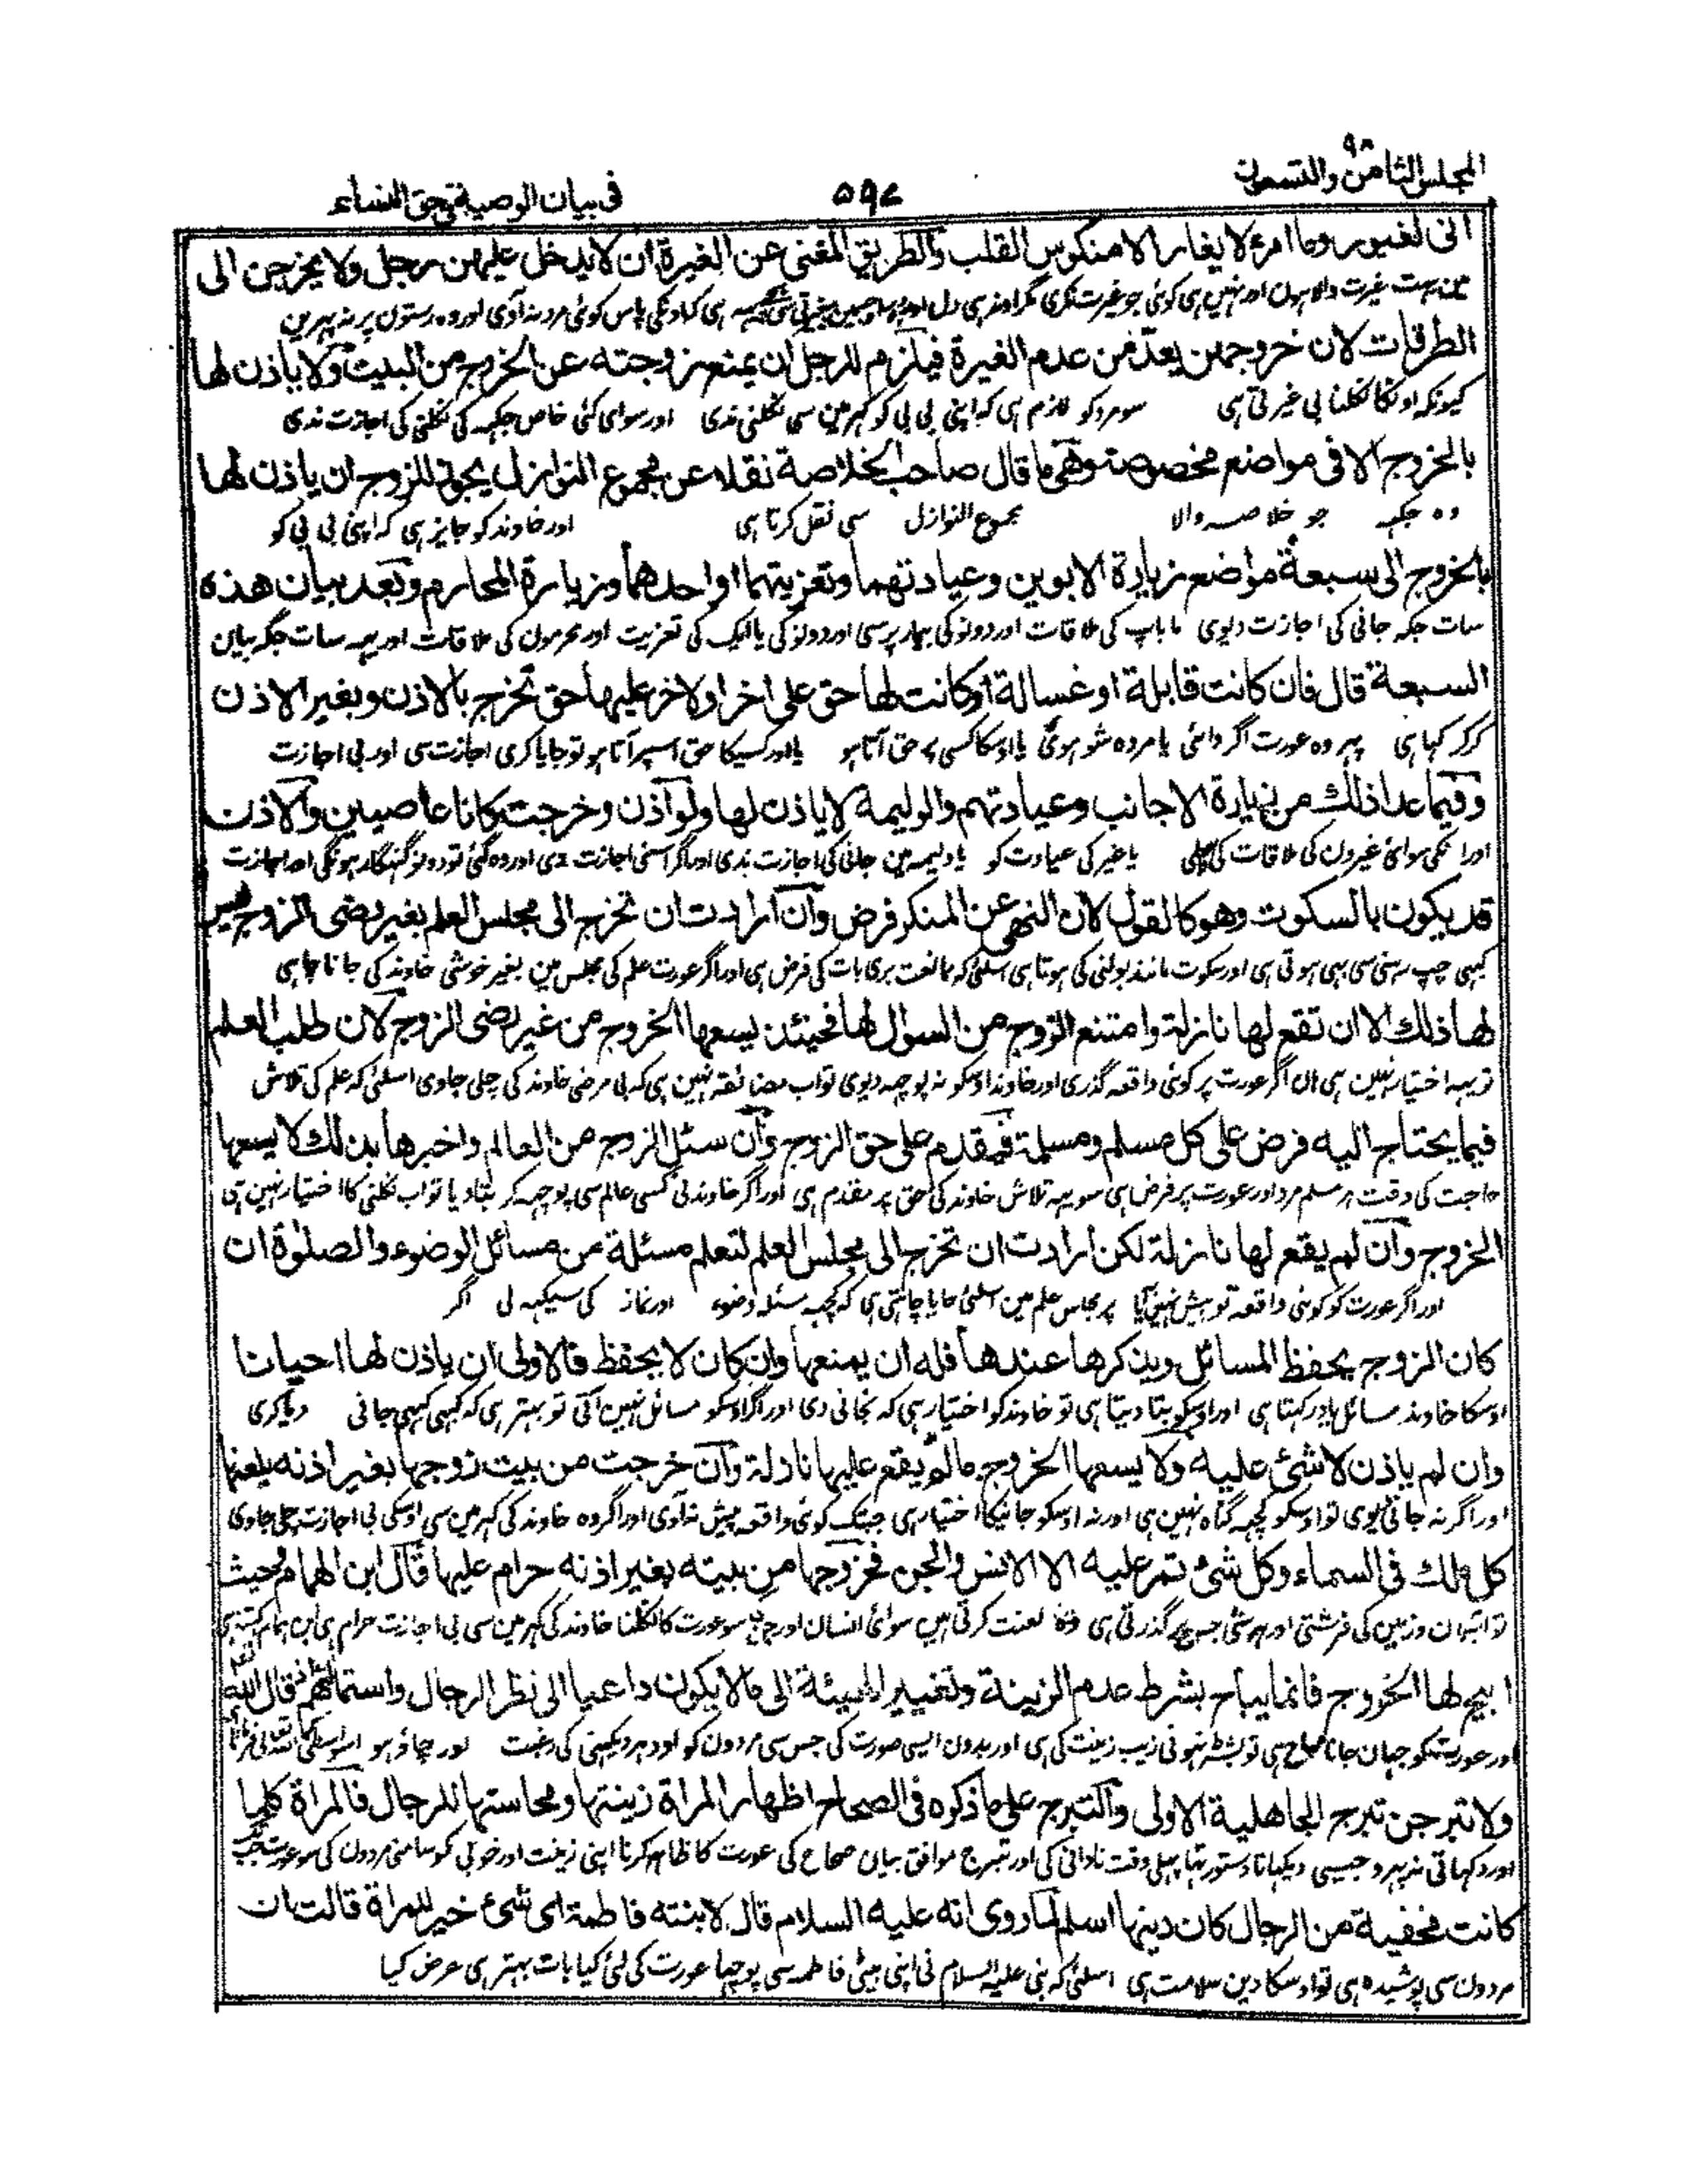 المجلس الثامن والتسعون ٩٨
٥٩٧
فى بيان الوصية فى حق النساء
انى لغيور وما امرء لا يغار الا منكوس القلب والطريق المغنى عن الغيرة ان لا يدخل عليهن رجل ولا يخرجن الى
مین بہت غیرت والا ہون اور نہین ہی کوئی جو غیرت نکری مگر اوندہی دل اور ہی کہ اونکی پاس کوئی مرد نہ آوی اور وہ رستون پر نہ پہرین
الطرقات لان خروجهن يعد من عدم الغيرة فيلزم للرجل ان يمنع زوجته عن الخروج من البيت ولا ياذن لها
کیونکہ اونکا نکلنا بی غیرتی ہی سو مرد کو لازم ہی کہ اپنی بی بی کو گہر مین سی نکلنی ندی اور سوای کئی خاص جگہہ کی نکلنی کی اجازت ندی
بالخروج الا فى مواضع مخصوصة وهى ما قال صاحب الخلاصة نقلا عن مجموع النوازل يجوز للزوج ان ياذن لها
وہ جگہہ جو خلاصہ والا مجموع النوازل سی نقل کرتا ہی اور خاوند کو جایز ہی کہ اپنی بی بی کو
بالخروج الى سبعة مواضع زيارة الابوين وعيادتهما وتعزيتهما او احدهما وزيارة المحارم وبعد بيان هذه
سات جگہ جانی کی اجازت دیوی ما باپ کی ملاقات اور دونو کی بیمار پرسی اور دونو کی یا ایک کی تعزیت اور محرمون کی ملاقات اور یہہ سات جگہ بیان
السبعة قال فان كانت قابلة او غسالة او كانت لها حق على اخر او لاخر عليها حق تخرج بالاذن وبغير الاذن
کرکر کہا ہی پہر وہ عورت اگر دائی یا مردہ شو ہوئی یا اوسکا کسی پر حق آتا ہو یا اور کسیکا حق اسپر آتا ہو تو جایا کری اجازت سی اور بی اجازت
وفيما عدا ذلك من زيارة الاجانب وعيادتهم والوليمة لا ياذن لها ولو اذن وخرجت كانا عاصيين والاذن
اور انکی سوائ غیرون کی ملاقات کی یا غیر کی عیادت کو یا ولیمہ مین جانی کی اجازت ندی اور اگر اسنی اجازت دی اور وہ گئی تو دونو گنہگار ہونگی اور اجازت
قد يكون بالسكوت وهو كالقول لان النهى عن المنكر فرض وان ارادت ان تخرج الى مجلس العلم بغير رضى الزوج ليس
کبہی چپ رہنی سی بہی ہوتی ہی اور سکوت مانند بولنی کی ہوتا ہی اسلئی کہ ممانعت بری بات کی فرض ہی اور اگر عورت علم کی مجلس مین بغیر خوشی خاوند کی جانا چاہی
لها ذلك الا ان تقع لها نازلة وامتنع الزوج من السوال لها فحينئذ يسعها الخروج من غير رضى الزوج لان طلب العلم
تو یہہ اختیار نہین ہی ہان اگر عورت پر کوئی واقعہ گذری اور خاوند اوسکو نہ پوچہہ دیوی تو اب مضائقہ نہین ہی کہ بی مرضی خاوند کی چلی جاوی اسلئی کہ علم کی تلاش
فيما يحتاج اليه فرض على كل مسلم ومسلمة فيقدم على حق الزوج وان سئل الزوج من العالم واخبرها بذلك لا يسعها
حاجت کی وقت ہر مسلم مرد اور عورت پر فرض ہی سو یہہ تلاش خاوند کی حق پر مقدم ہی اور اگر خاوند نی کسی عالم سی پوچہہ کر بتا دیا تو اب نکلنی کا اختیار نہین ہی
الخروج وان لم يقع لها نازلة لكن ارادت ان تخرج الى مجلس العلم لتعلم مسئلة من مسائل الوضوء والصلوة ان
اور اگر عورت کو کوئی واقعہ تو پیش نہین آیا پر مجلس علم مین اسلئی جایا چاہتی ہی کہ کچہہ مسئلہ وضوء اور نماز کی سیکہہ لی اگر
كان الزوج يحفظ المسائل ويذكرها عندها فله ان يمنعها وان كان لا يحفظ فالاولى ان ياذن لها احيانا
اوسکا خاوند مسائل یاد رکہتا ہی اور اوسکو بتا دیتا ہی تو خاوند کو اختیار ہی کہ نجانی دی اور اگر اوسکو مسائل نہین آتی تو بہتر ہی کہ کبہی کبہی جانی دیا کری
وان لم ياذن لا شئ عليه ولا يسعها الخروج ما لم يقع عليها نازلة وان خرجت من بيت زوجها بغير اذنه يلعنها
اور اگر نہ جانی دیوی تو اوسکو کچہہ گناہ نہین ہی اور نہ اوسکو جانیکا اختیار ہی جبتک کوئی واقعہ پیش نہ آوی اور اگر وہ خاوند کی گہر مین سی اوسکی بی اجازت چلی جاوی
كل ملك فى السماء وكل شئ تمر عليه الا الانس والجن فخروجها من بيته بغير اذنه حرام عليها قال ابن الهمام وحيث
تو آسمان و زمین کی فرشتی اور ہر شئ جس پر گذرتی ہی لعنت کرتی ہین سوائ انسان اور جن سو عورت کا نکلنا خاوند کی گہر مین سی بی اجازت حرام ہی ابن ہمام کہتی ہی
ابيح لها الخروج فانما يباح بشرط عدم الزينة وتغيير الهيئة الى ما لا يكون داعيا الى نظر الرجال واستمالتهم قال الله
اور عورت کو جہان جانا مباح ہی تو بشرط نہونی زیب زینت کی ہی اور بدون ایسی صورت کی جس سی مردون کو اودہر دیکہنی کی رغبت اور چاؤ ہو
ولا تبرجن تبرج الجاهلية الاولى والتبرج على ما ذكره فى الصحاح اظهار المراة زينتها ومحاسنها للرجال فالمراة كلما
اور دکہاتی نہ پہرو جیسی دیکہانا دستور تہا پہلی وقت نادانی کی اور تبرج موافق بیان صحاح کی عورت کا ظاہر کرنا اپنی زینت اور خوبی کو سامنی مردون کی سو عورت جب
كانت مخفية من الرجال كان دينها اسلم لما روى انه عليه السلام قال لابنته فاطمة اى شئ خير للمراة قالت ان
مردون سی پوشیدہ ہی تو اوسکا دین سلامت ہی اسلئی کہ نبی علیہ السلام نی اپنی بیٹی فاطمہ سی پوچہا عورت کی لئی کیا بات بہتر ہی عرض کیا